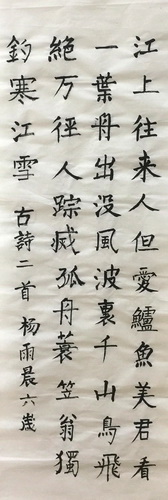 江上往来人但愛鱸魚美君看
一葉舟出没風波裏千山鳥飛
絶万徑人踪滅孤舟蓑笠翁獨
釣寒江雪 古詩二首 楊雨晨六歲